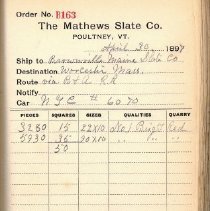 Order No. B163
The Mathews Slate Co.
POULTNEY, VT.
April 29, 1898
Ship to Brownville Maine Slate Co
Destination Worcester Mass.
Route via B & A R.R.
Notify
Car N.Y.C. # 6070
PIECES SQUARES SIZES QUALITIES QUARRY
3280 15 22x10 No1 Bright Red
5930 35 20x10 " " "
50